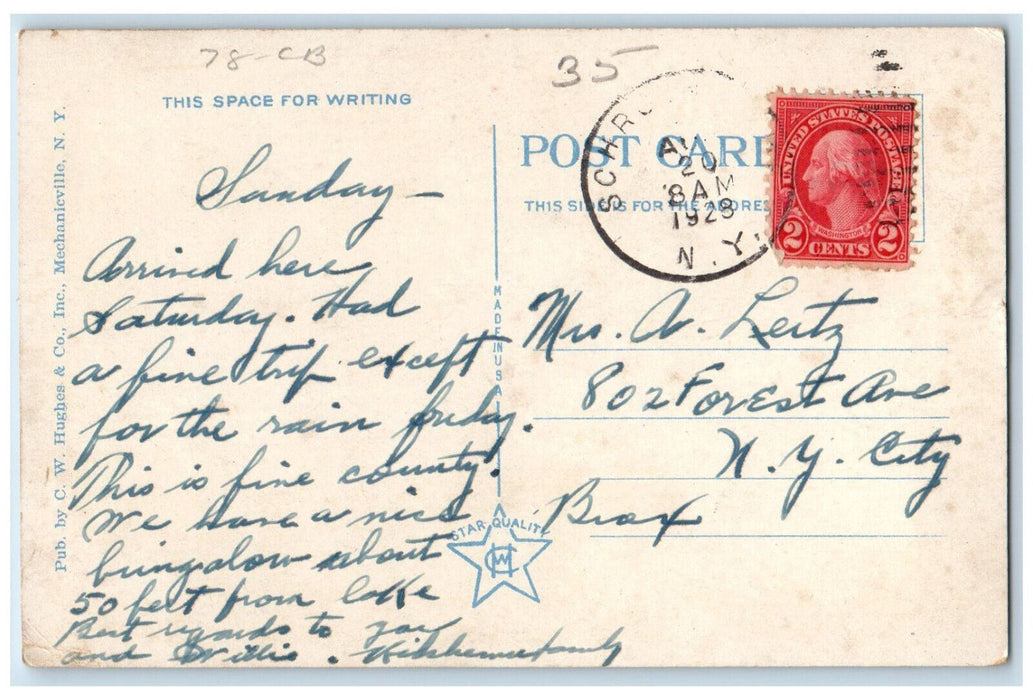 78-CB
35
THIS SPACE FOR WRITING
POST CARD
THIS SIDE IS FOR THE ADDRESS
SCHRO
20
8 AM
1928
N.Y.
UNITED STATES POSTAGE
WASHINGTON
2 CENTS 2
Sunday –
Arrived here
Saturday. Had
a fine trip except
for the rain friday.
This is fine county.
We have a nice
bungalow about
50 feet from lake
Best regards to you
and Willie. family
Mrs. A. Leitz
802 Forest Ave
N. Y. City
Bronx
MADE IN USA
STAR QUALITY
CWH
Pub. by C. W. Hughes & Co., Inc., Mechanicville, N. Y.